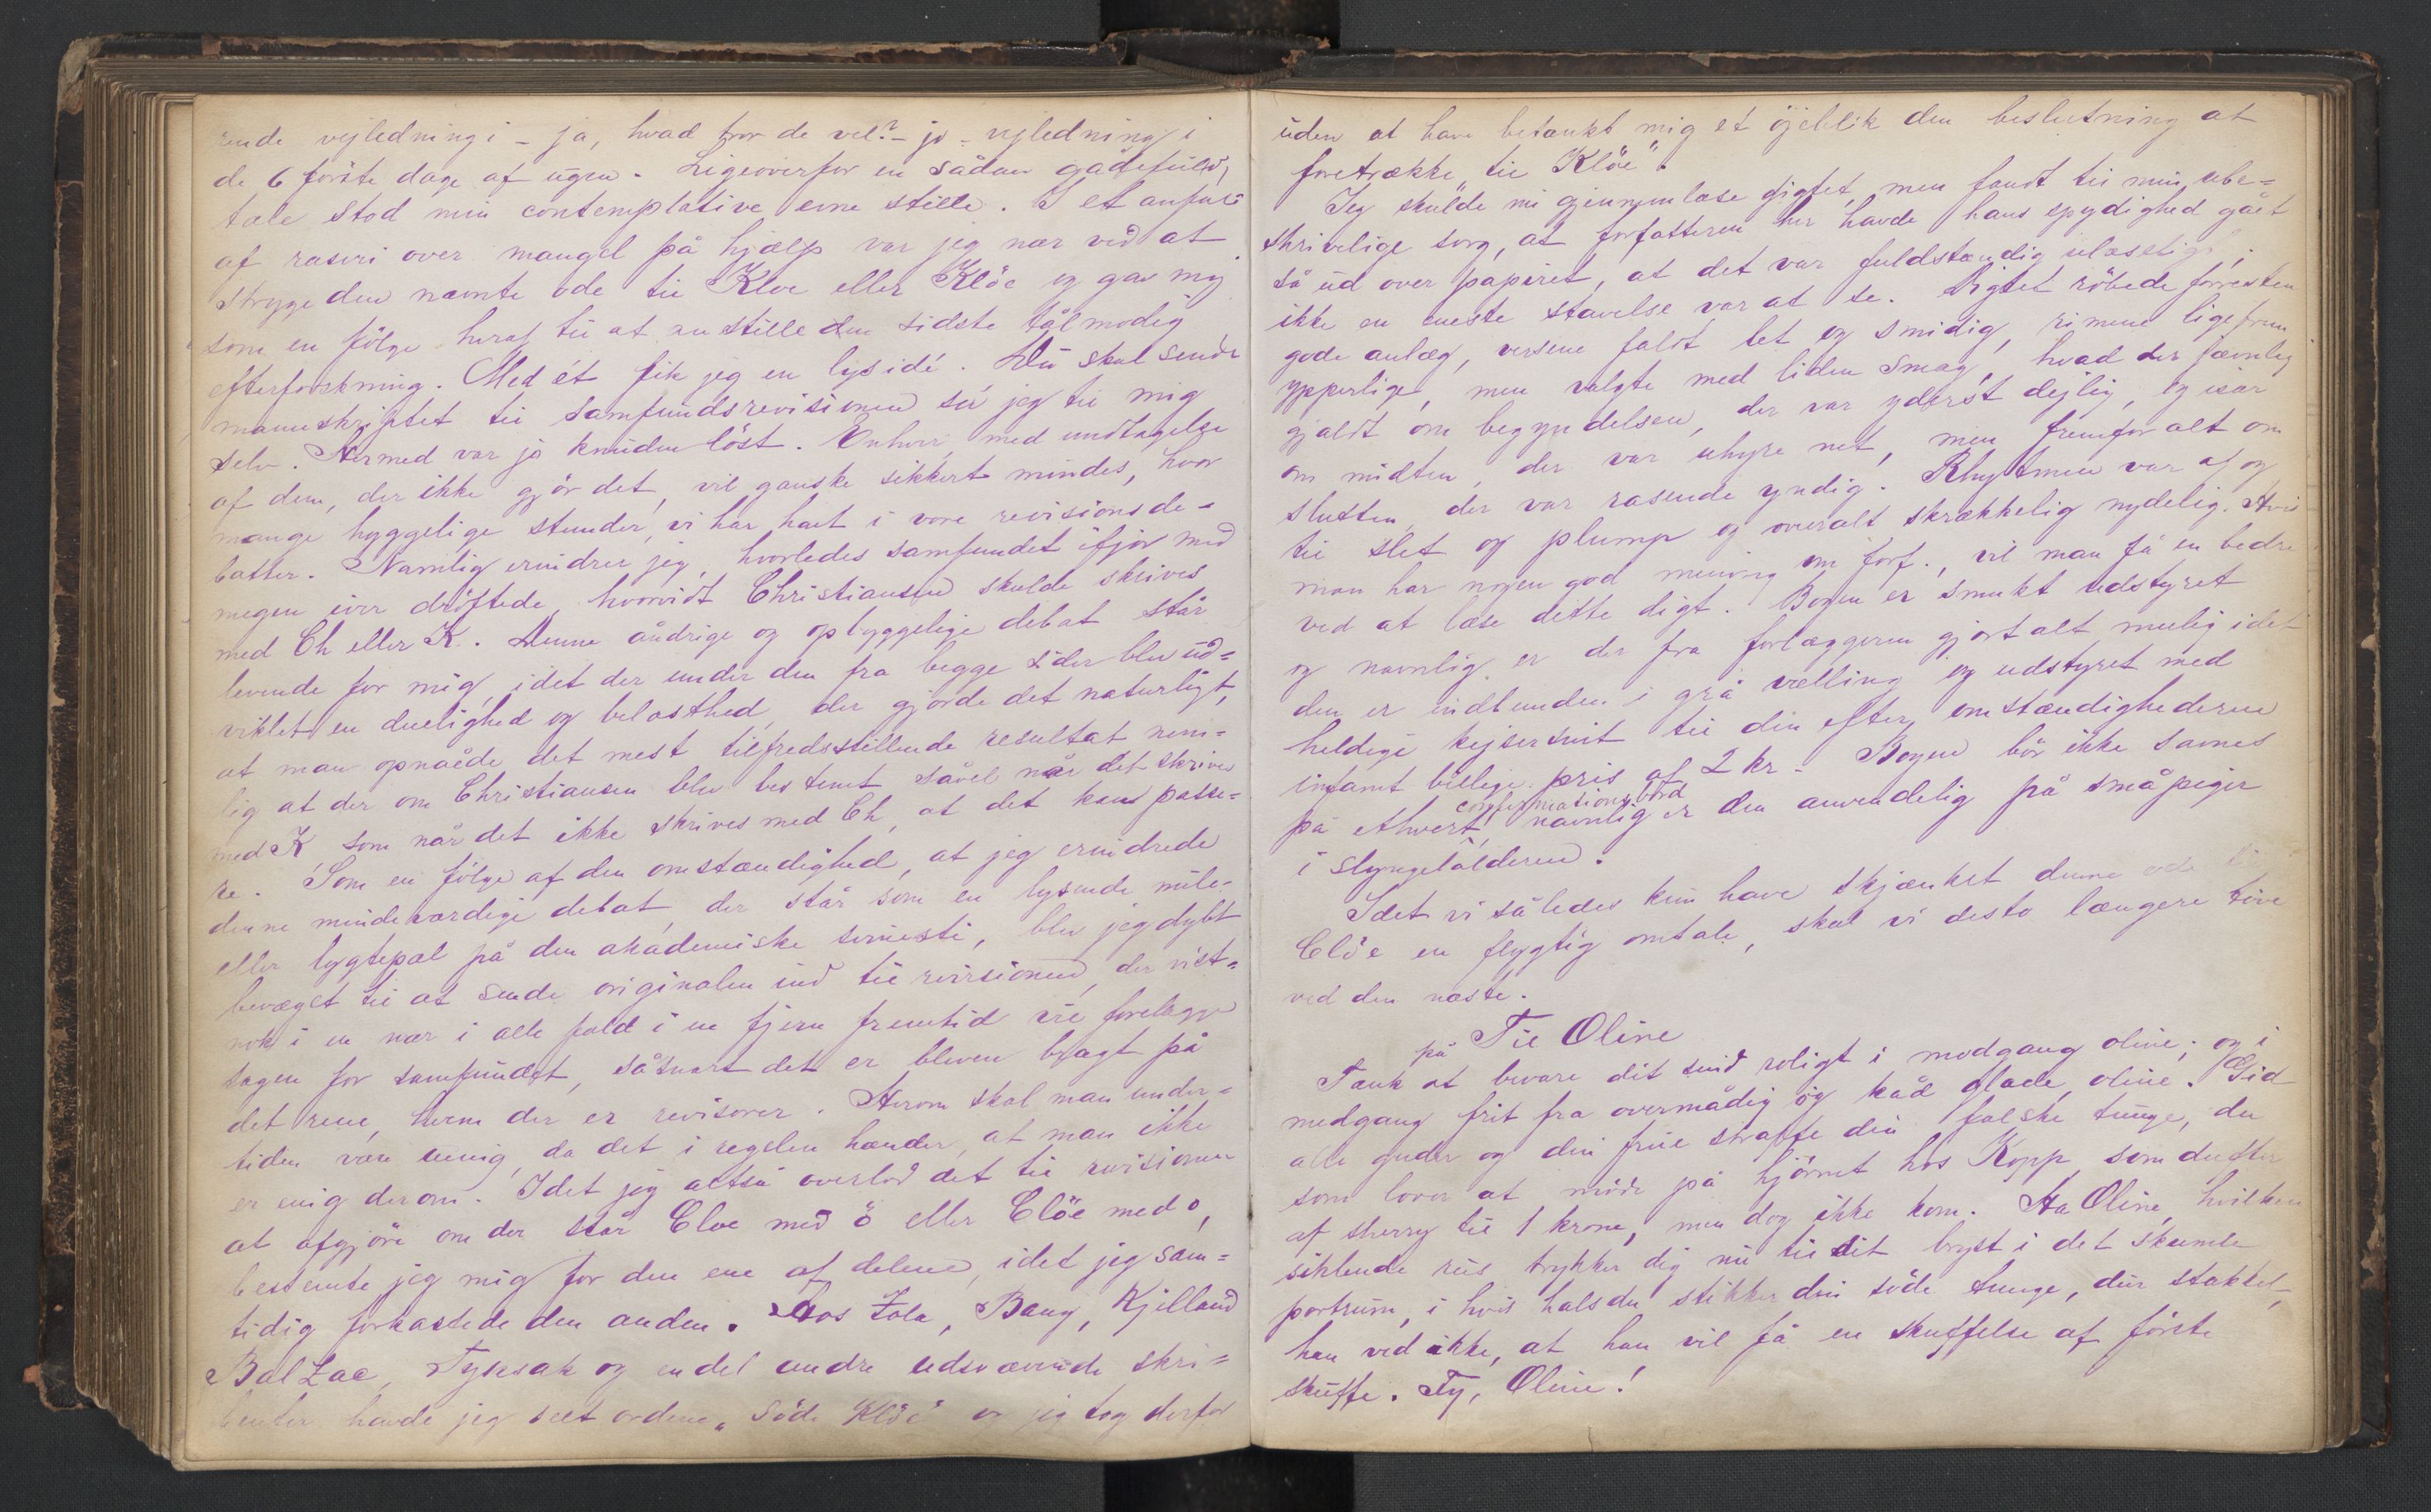 rende vejledning i - ja, hvad tror de vel? - jo - vejledning i
de 6 förste dage af ugen. Ligeoverfor en sådan gådefuld
tale stod min contemplative evne stille. I et anfald
af raseri over mangel på hjælp var jeg nær ved at
stryge den nævnte ode til Kloe eller Klöe og gav mig
som en fölge heraf til at anstille den sidste tålmodig
efterforskning. Med ét fik jeg en lysidé. Du skal sende
manuskriptet til samfundsrevisionen sa' jeg til mig
selv. Hermed var jo knuden löst. Enhver, med undtagelse
af dem, der ikke gjör det, vil ganske sikkert mindes, hvor
mange hyggelige stunder, vi har havt i vore revisionsde-
batter. Navnlig erindrer jeg, hvorledes samfundet ifjor med
megen iver dröftede, hvorvidt Christiansen skulde skrives
med Ch eller K. Denne åndrige og opbyggelige debat står
levende for mig, idet der under den fra begge sider blev ud=
viklet en duelighed og belæsthed, der gjorde det naturligt,
at man opnåede det mest tilfredsstillende resultat nem=
lig at der om Christiansen blev bestemt såvel når det skrives
med K, som når det ikke skrives med Ch, at det kan passe=
re. Som en fölge af den omstændighed, at jeg erindrede
denne mindeværdige debat, der står som en lysende mile=
eller lygtepæl på den akademiske tornesti, blev jeg dybt
bevæget til at sende originalen ind til revisionen, der vist=
nok i en nær i alle fald i en fjern fremtid vil forelægge
sagen for samfundet, såsnart det er bleven bragt på
det rene, hvem der er revisorer. Herom skal man under=
tiden være uenig, da det i regelen hænder, at man ikke
er enig derom. Idet jeg altså overlod det til revisionen
at afgjöre om der står Cloe med ö eller Clöe med o,
bestemte jeg mig for den ene af delene, idet jeg sam=
tidig forkastede den anden. Hos Zola, Bang, Kjelland
BalZac, Tyksak og en del andre udsvævende skri=
benter havde jeg seet ordene „Söde Klöe" og jeg tog derfor
uden at have betænkt mig et öjeblik den beslutning at
foretrække til Klöe".
Jeg skulde nu gjennemlæse digtet, men fandt til min ube=
skrivelige sorg, at forfatteren her havde hans spydighed gået
så ud over papiret, at det var fuldstændig ulæseligt,
ikke en eneste stavelse var at se. Digtet röbede forresten
gode anlæg, versene faldt let og smidig, rimene ligefrem
ypperlige, men valgte med liden smag, hvad der jævnlig
gjaldt om begyndelsen, der var yderst dejlig, og især
om midten, der var uhyre net, men fremfor alt om
slutten, der var rasende yndig. Rhytmen var af og
til slet og plump og overalt skrækkelig nydelig. Hvis
man har nogen god mening om forf., vil man få en bedre
ved at læse dette digt. Bogen er smukt udstyret
og navnlig er der fra forlæggeren gjort alt muligt idet
den er indbunden i grå vælling og udstyret med
heldige kejsersnit til din efter omstændighederne
infamt billige pris af 2 kr. - Bogen bör ikke savnes
på ethvert confirmationsbord, navnlig er den anvendelig på småpiger
i slyngelalderen.
Idet vi således kun have skjænket denne ode til
Clöe en flygtig omtale, skal vi desto længere tøve
ved den næste.
Til Oline
Tænk på at bevare dit sind roligt i modgang oline, og i
medgang frit fra overmådig og kåd glæde, oline. Gid
alle guder og din frue straffe din falske tunge, du
som lover at möde på hjörnet hos Kopp, som dufter
af sherry til 1 krone, men dog ikke kom. Ha Oline, hvilken
siklende rus trykker dig nu til dit bryst i det skumle
portrum, i hvis hals du stikker din söde tunge, din stakkel,
han ved ikke, at han vil få en skuffelse af förste
skuffe. Fy, Oline!